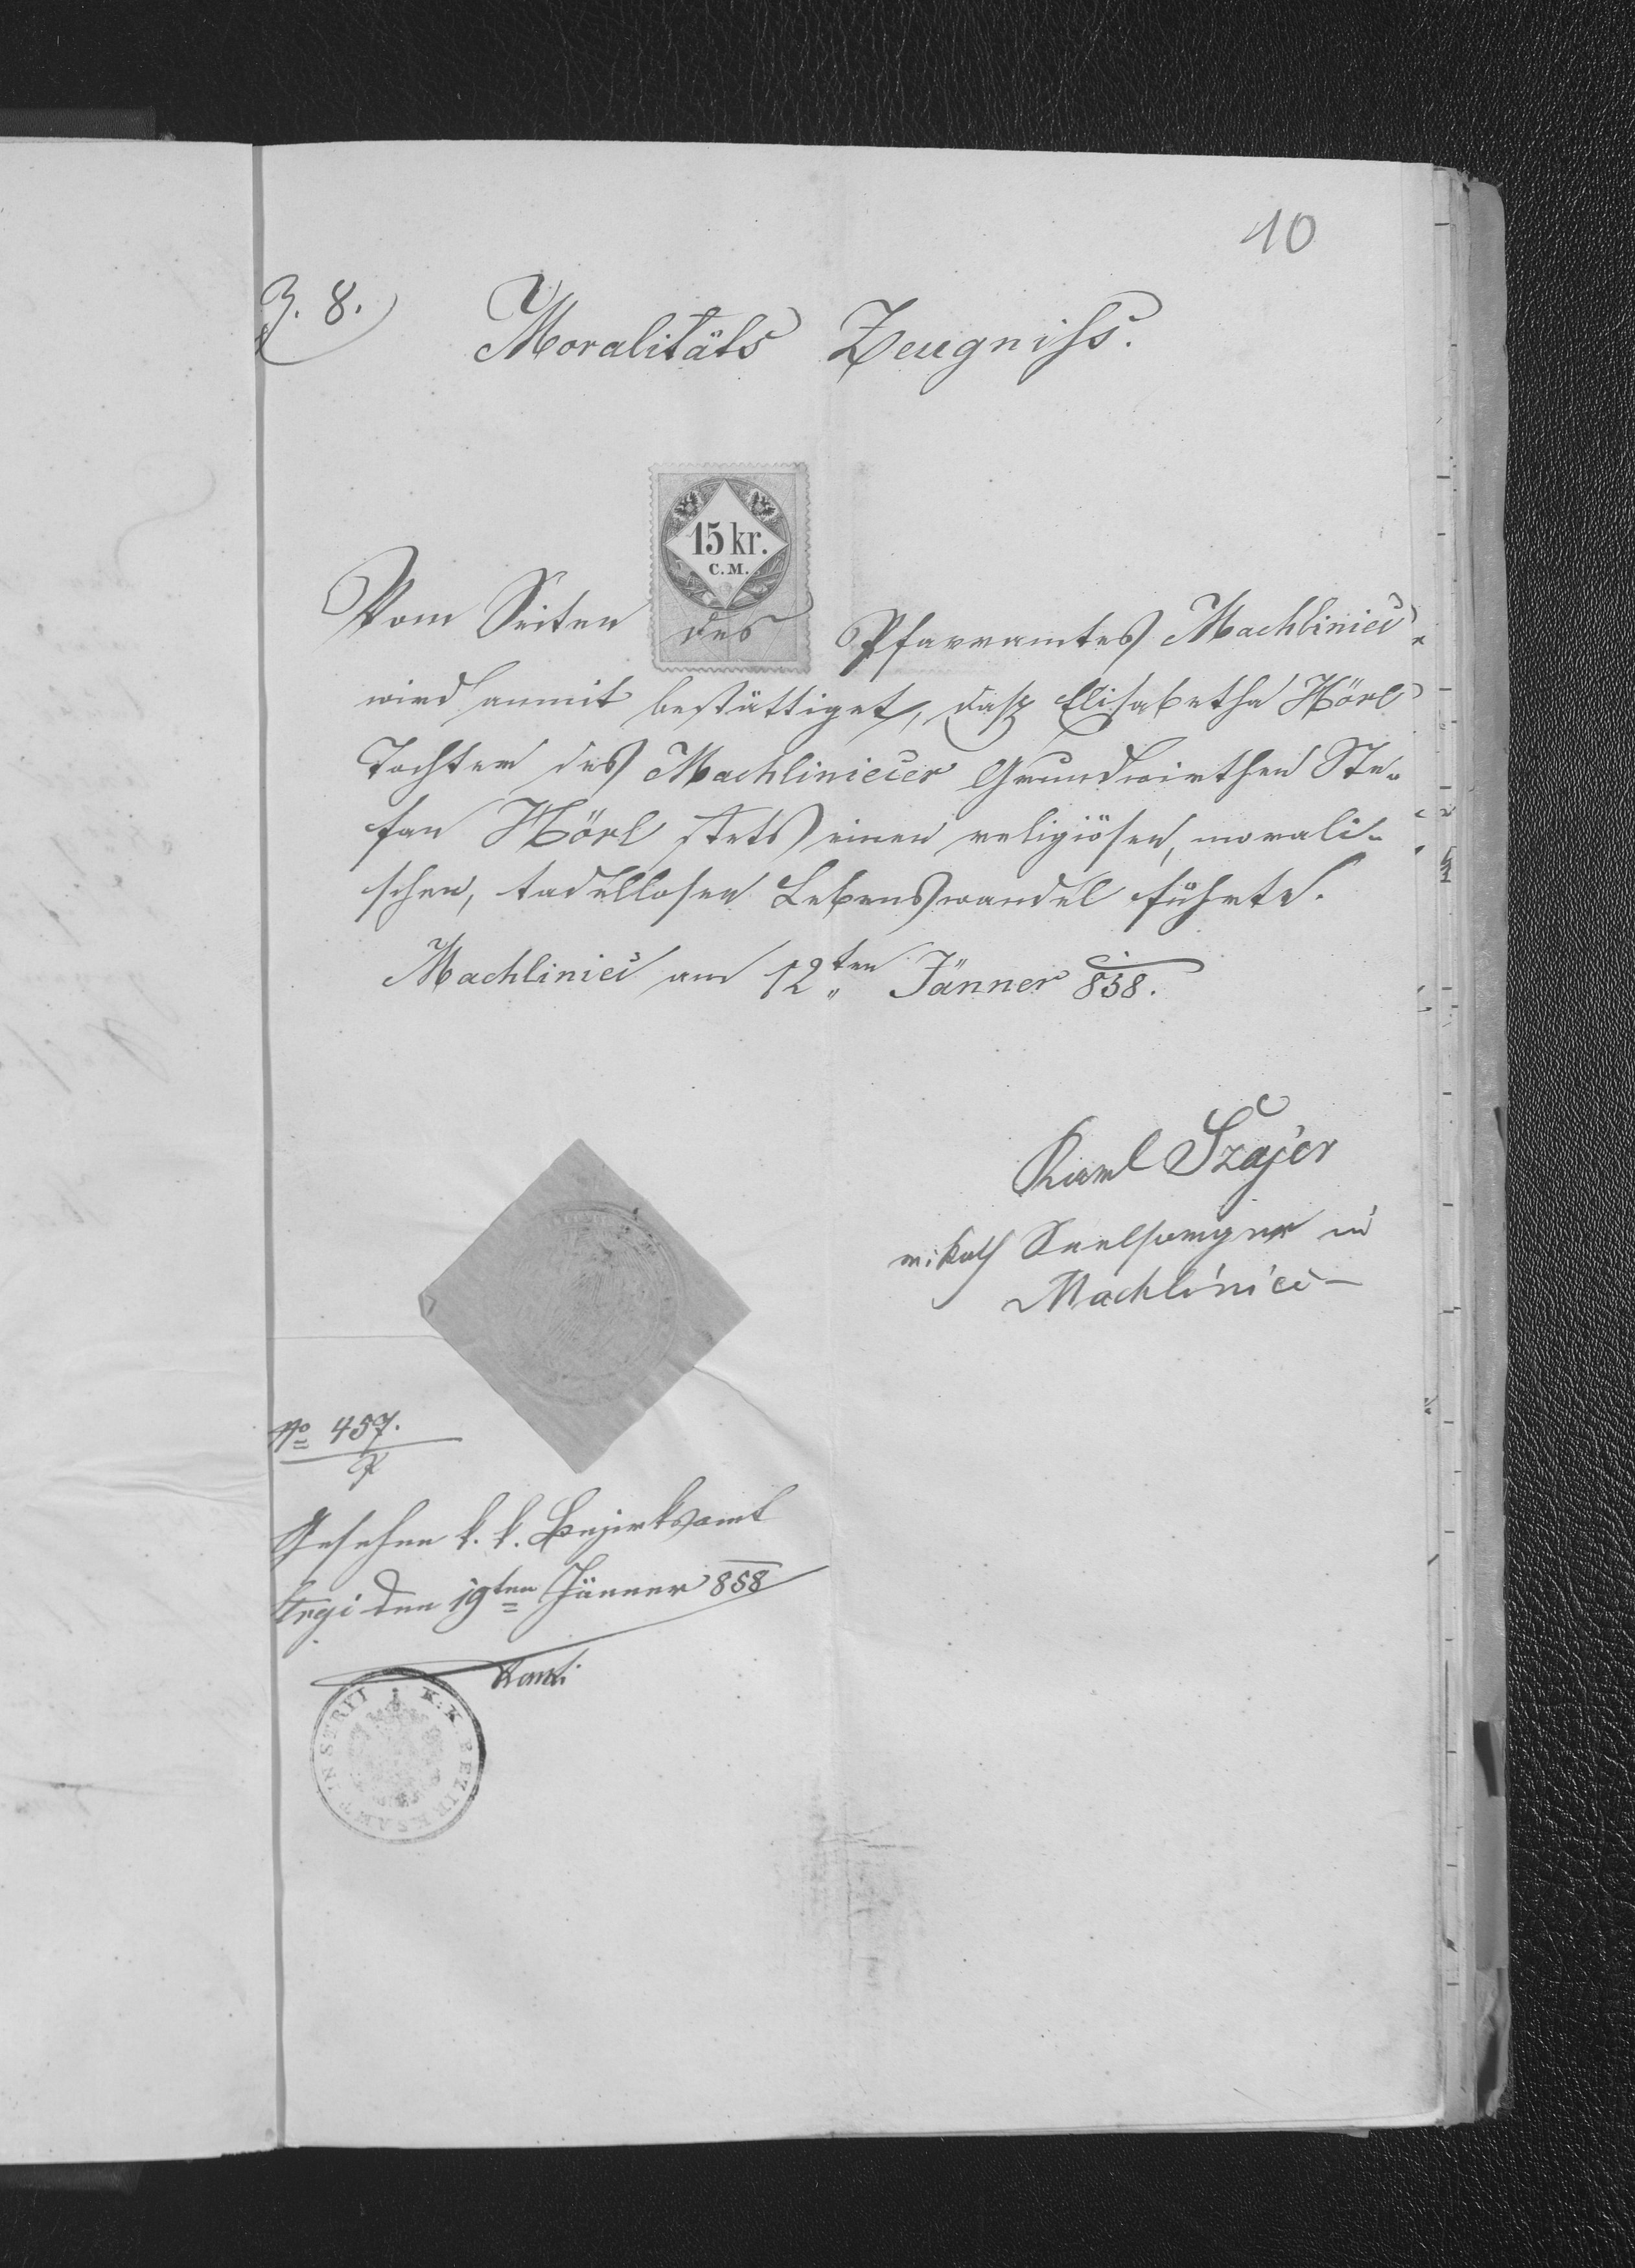 10
Z. 8.
Moralitäts Zeugniss.
15 kr.
C. M.
Vom Seiten des Pfarramtes Machliniec
wird anmit bestättiget, daß Elisabetha Hörl
Tochter des Machliniecer Grundwirthen Ste-
fan Hörl stets einen religiösen, morali-
schen, tadellosen Lebenswandel führte.
Machliniec am 12ten Jänner 858.
Karl Szajer
r: kath Seelsorger in
Machliniec
No 457.
Gesehen k. k. Bezirksamt
Stryi den 19ten Jänner 858
K. K. BEZIRKSAMT IN STRYI